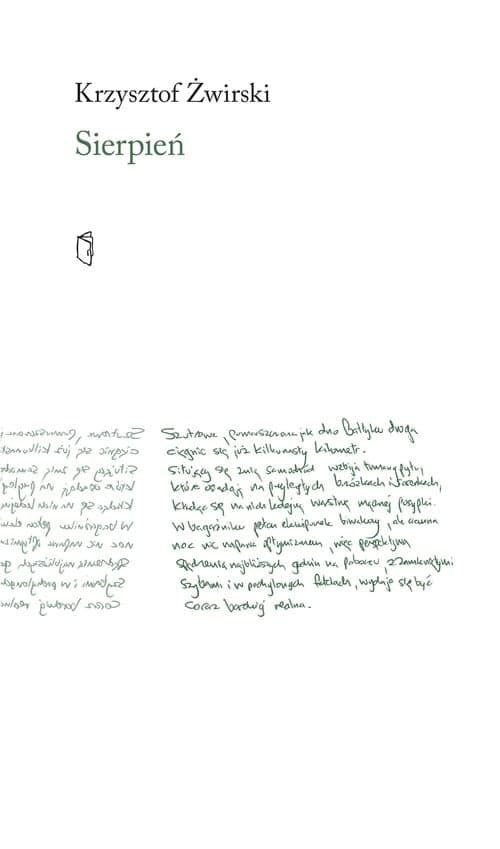 Krzysztof Żwirski
Sierpień
Szutrowa, pomarszczona jak dno Bałtyku droga
ciągnie się już kilkunasty kilometr.
Siłujący się z nią samochód wzbija tumany pyłu,
które osiadają na przyległych brzózkach i świerkach,
kładąc się na nich kolejną warstwą mącznej posypki.
W bagażniku pełen ekwipunek biwakowy, ale czarna
noc nie napawa optymizmem, więc perspektywa
spędzenia najbliższych godzin na poboczu, z zamkniętymi
szybami i w pochylonych fotelach, wydaje się być
coraz bardziej realna.